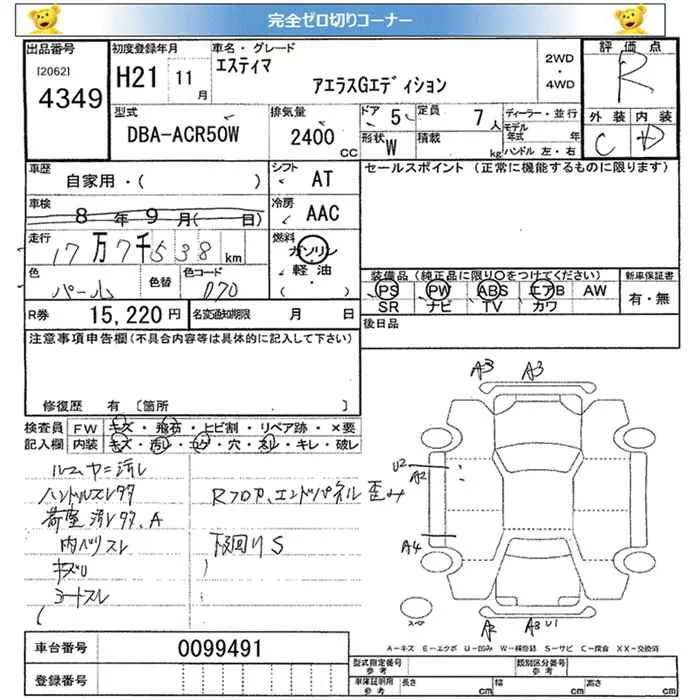 完全ゼロ切りコーナー
出品番号
[2062]
4349
初度登録年月
H21 11月
車名・グレード
エスティマ
アエラスGエディション
2WD
・
4WD
評価点
R
外装 内装
C D
型式
DBA-ACR50W
排気量
2400 CC
ドア 5
定員 7人
形状 W
積載 kg
ディーラー・並行
モデル年式 年
ハンドル 左・右
車歴
自家用・( )
シフト AT
セールスポイント (正常に機能するものに限ります)
車検
8年 9月( 日)
冷房 AAC
走行
17万7千538km
燃料
ガソリン
・軽油・
( )
色
パール
色替
色コード
070
装備品(純正品に限り○をつけてください)
PS PW ABS エアB AW
SR ナビ TV カワ
新車保証書
有・無
R券 15,220円
名変通知期限 月 日
後日品
注意事項申告欄(不具合内容等は具体的に記入して下さい)
修復歴 有 〔箇所 〕
検査員記入欄
FW キズ・飛石・ヒビ割・リペア跡・×要
内装 キズ・汚レ・コゲ・穴・スレ・キレ・破レ
ルームヤニ汚レ
ハンドルスレタタ
荷室汚レタタ、A
内ハリスレ
キズU
コートスレ
Rフロア、エンドパネル歪み
下回りS
A3 A3
U2
A2
A4
A2 A3 U1
A-キズ E-エクボ U-凹み W-補修跡 S-サビ C-腐食 XX-交換済
車台番号 0099491
登録番号
型式指定番号 参考
類別区分番号 参考
車庫証明用 参考
長さ cm 幅 cm 高さ cm